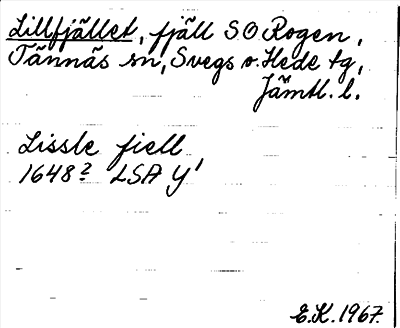 Lillfjället, fjäll SO Rogen,
Tännäs sn, Svegs o. Hede tg,
Jämtl. l.
Lissle fiell
1648? LSA Y¹
E.K. 1967.